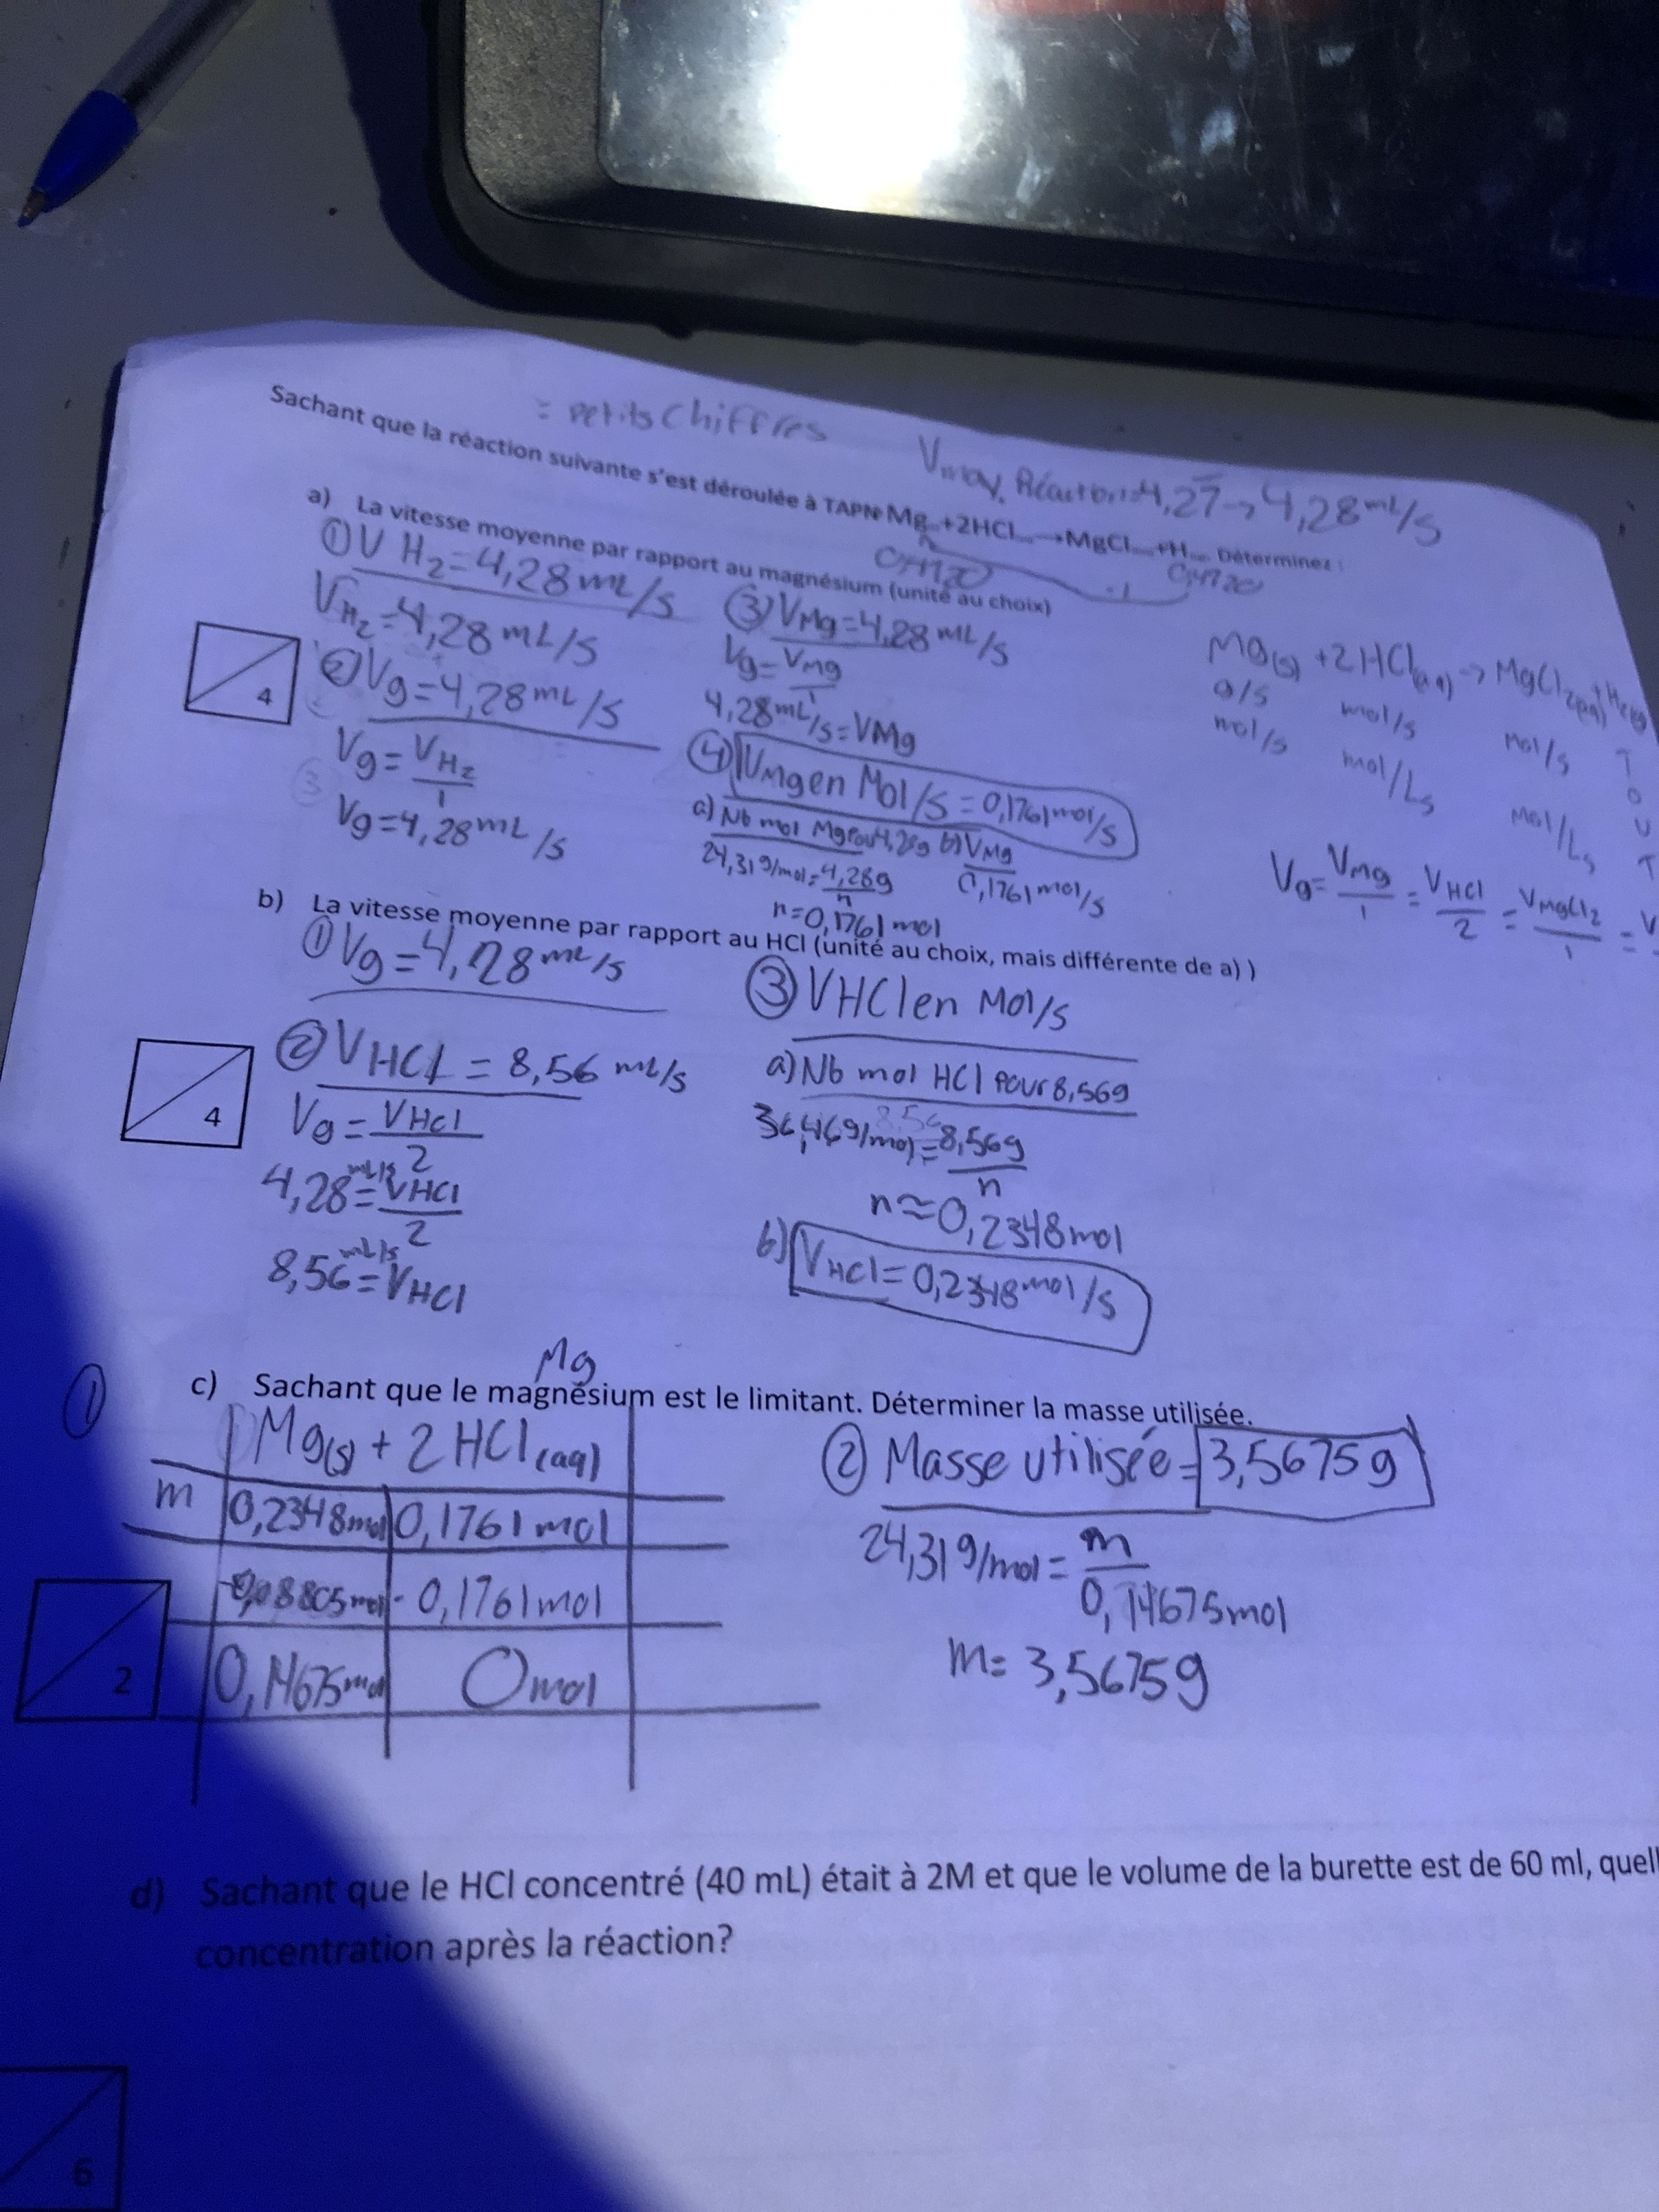 = petits Chiffres
Vmoy. Réaction=4,27→4,28 mL/s
Sachant que la réaction suivante s'est déroulée à TAPN Mg +2HCl →MgCl +H Déterminez :
a) La vitesse moyenne par rapport au magnésium (unité au choix)
① V H₂=4,28 mL/s
VH₂=4,28 mL/s
② Vg=4,28 mL/s
Vg=VH₂/1
Vg=4,28 mL/s
4
③ VMg=4,28 mL/s
Vg=VMg/1
4,28 mL/s=VMg
④ VMg en Mol/s=0,1761 mol/s
a) Nb mol Mg Pour 4,28g
24,31 g/mol=4,28g/n
n=0,1761 mol
b) VMg
0,1761 mol/s
Mg(s) +2HCl(aq)→ MgCl2(aq)+H2(g)
g/s mol/s mol/s T
mol/s mol/Ls mol/Ls O
U
T
Vg=VMg/1 = VHCl/2 = VMgCl2/1 = V
b) La vitesse moyenne par rapport au HCl (unité au choix, mais différente de a) )
① Vg=4,28 mL/s
② VHCl = 8,56 mL/s
Vg=VHCl/2
4,28 mL/s=VHCl/2
8,56 mL/s=VHCl
4
③ VHCl en Mol/s
a) Nb mol HCl Pour 8,56g
36,46g/mol=8,56g/n
n≈0,2348mol
b) VHCl=0,2348 mol/s
Mg
① c) Sachant que le magnésium est le limitant. Déterminer la masse utilisée.
Mg(s) + 2 HCl(aq)
m 0,2348mol 0,1761 mol
-0,08805mol - 0,1761mol
0,14675mol 0mol
2
② Masse utilisée=3,5675g
24,31 g/mol= m/0,14675mol
m= 3,5675g
d) Sachant que le HCl concentré (40 mL) était à 2M et que le volume de la burette est de 60 ml, quell
concentration après la réaction?
6